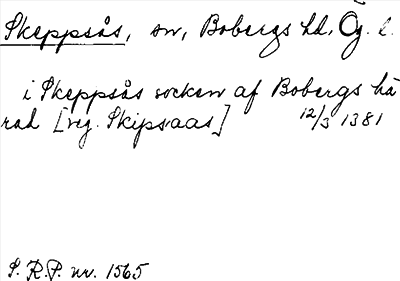 Skeppsås, sn, Bobergs hd, Ög. l.
i Skeppsås socken af Bobergs hä
rad [reg. Skipsaas] 12/3 1381
S. R. P. nr. 1565